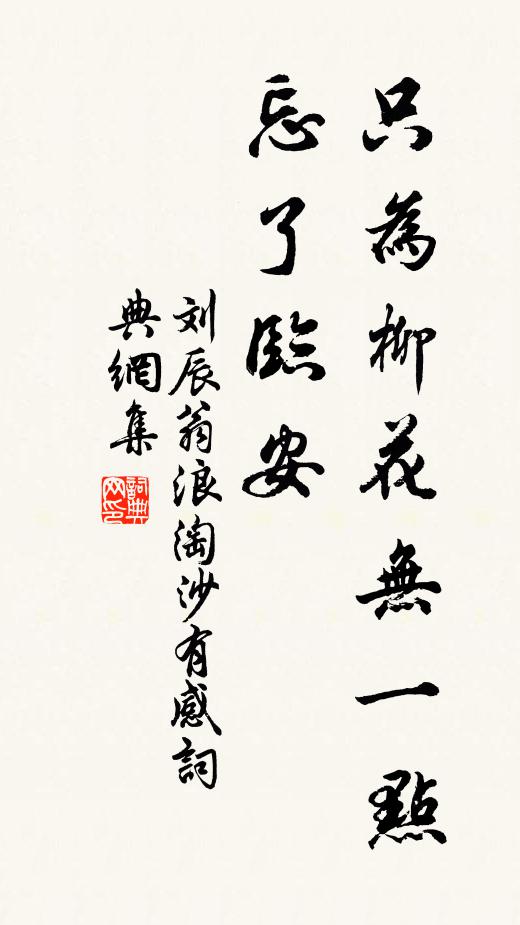 只為柳花無一點
忘了臨安
刘辰翁浪淘沙有感詞
典網集
詞典
网印